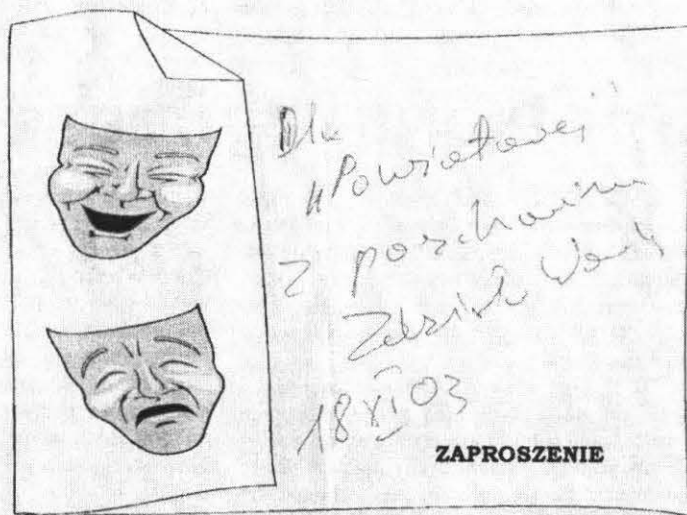 Dla
„Powiatowej"
z pozdrowieniem
Zdzisław
18 XI 03
ZAPROSZENIE